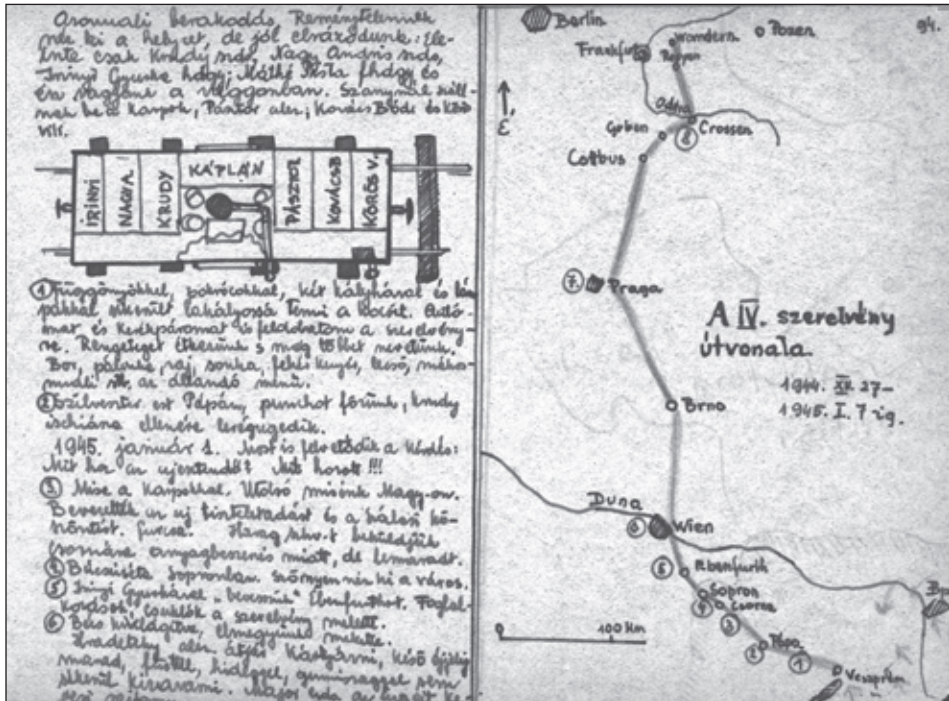 Azonnali berakodás. Reménytelennek
néz ki a helyzet, de jól elvázodunk: Ele-
inte csak Krúdy szds, Nagy Andris szds,
Irinyi Gyuszka hdgy; Máthé Pista fhdgy és
én vagyunk a vaggonban. Szanynál száll-
nak be a Karpok, Pásztor alez; Kovács B és Kőrös
vili.
IRINYI
NAGY A
KRUDY
KÁPLÁN
PÁSZTOR
KOVÁCS B
KŐRÖS V.
① Függönyökkel, pokrócokkal, két kályhával és lám-
pákkal sikerült lakályossá tenni a kocsit. Autó-
mat és kerékpáromat is feldobatom a szerelvény-
re. Rengeteget eszünk s még többet nevetünk.
Bor, pálinka, vaj, sonka, fehér kenyér, mákos
az állandó menü.
② Szilveszter est Pápán, puncsot főzünk, Krudy
ischiása ellenére
1945. január 1. Most is felvetődik a kérdés:
Mit hoz az ujesztendő? Mit hozott !!!
③ Mise a Karpokkal. Utolsó misénk Magy-on.
Bevezették az uj tiszteletadást és a szálasi kö-
szöntést. Furcsa. Harag beküldjük
Csornára anyagbeszerzés miatt, de lemaradt.
④ Búcsúséta Sopronban. Szörnyen néz ki a város.
⑤ Irinyi Gyuszkával „bevesszük" Ebenfurthot. Fogfal-
a szerelvény mellett.
⑥ Bécs kivilágítva, elmegyünk mellette.
alez. átjön Kártyázni, késő éjjelig
marad, füsttel, hideggel, sem
sikerül kizavarni. Major
94.
Berlin
Frankfurt
Wandern
Reppen
Pozen
É.
Odera
Guben
Crossen
⑧
Cottbus
⑦
Praga
A IV. szerelvény
útvonala.
1944. XII. 27-
1945. I. 7 ig.
Brno
Duna
⑥
Wien
⑤
Ebenfurth
Sopron
④
Csorna
③
0
100 Km
Pápa
②
①
Veszprém